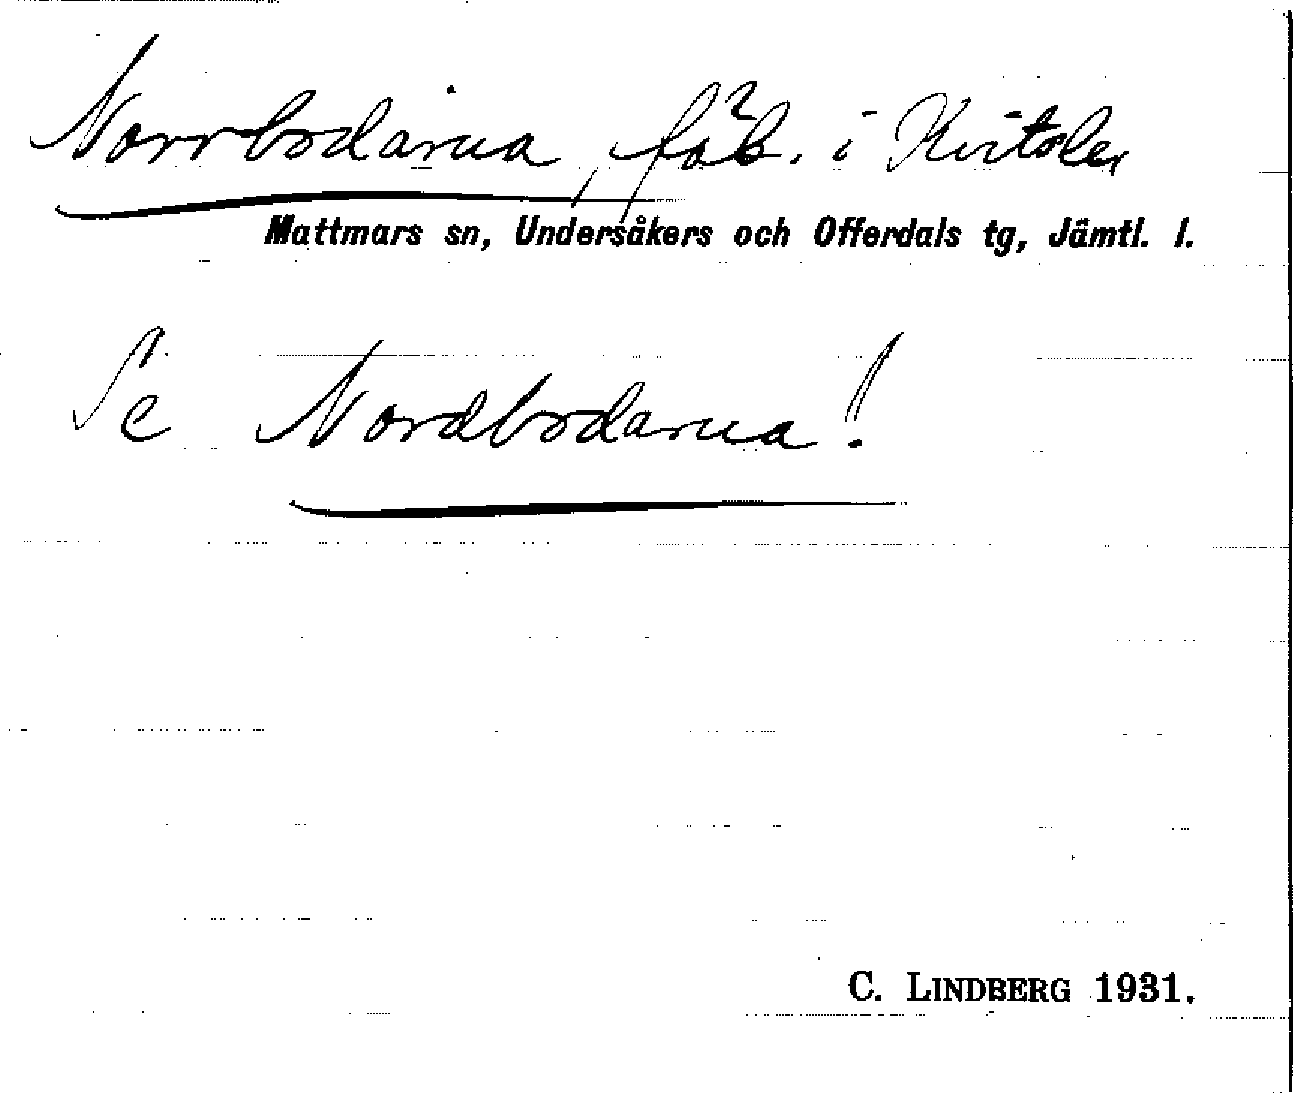 Norrbodarna, fäb. i Kvitsle,
Mattmars sn, Undersåkers och Offerdals tg, Jämtl. l.
Se Nordbodarna!
C. LINDBERG 1931.